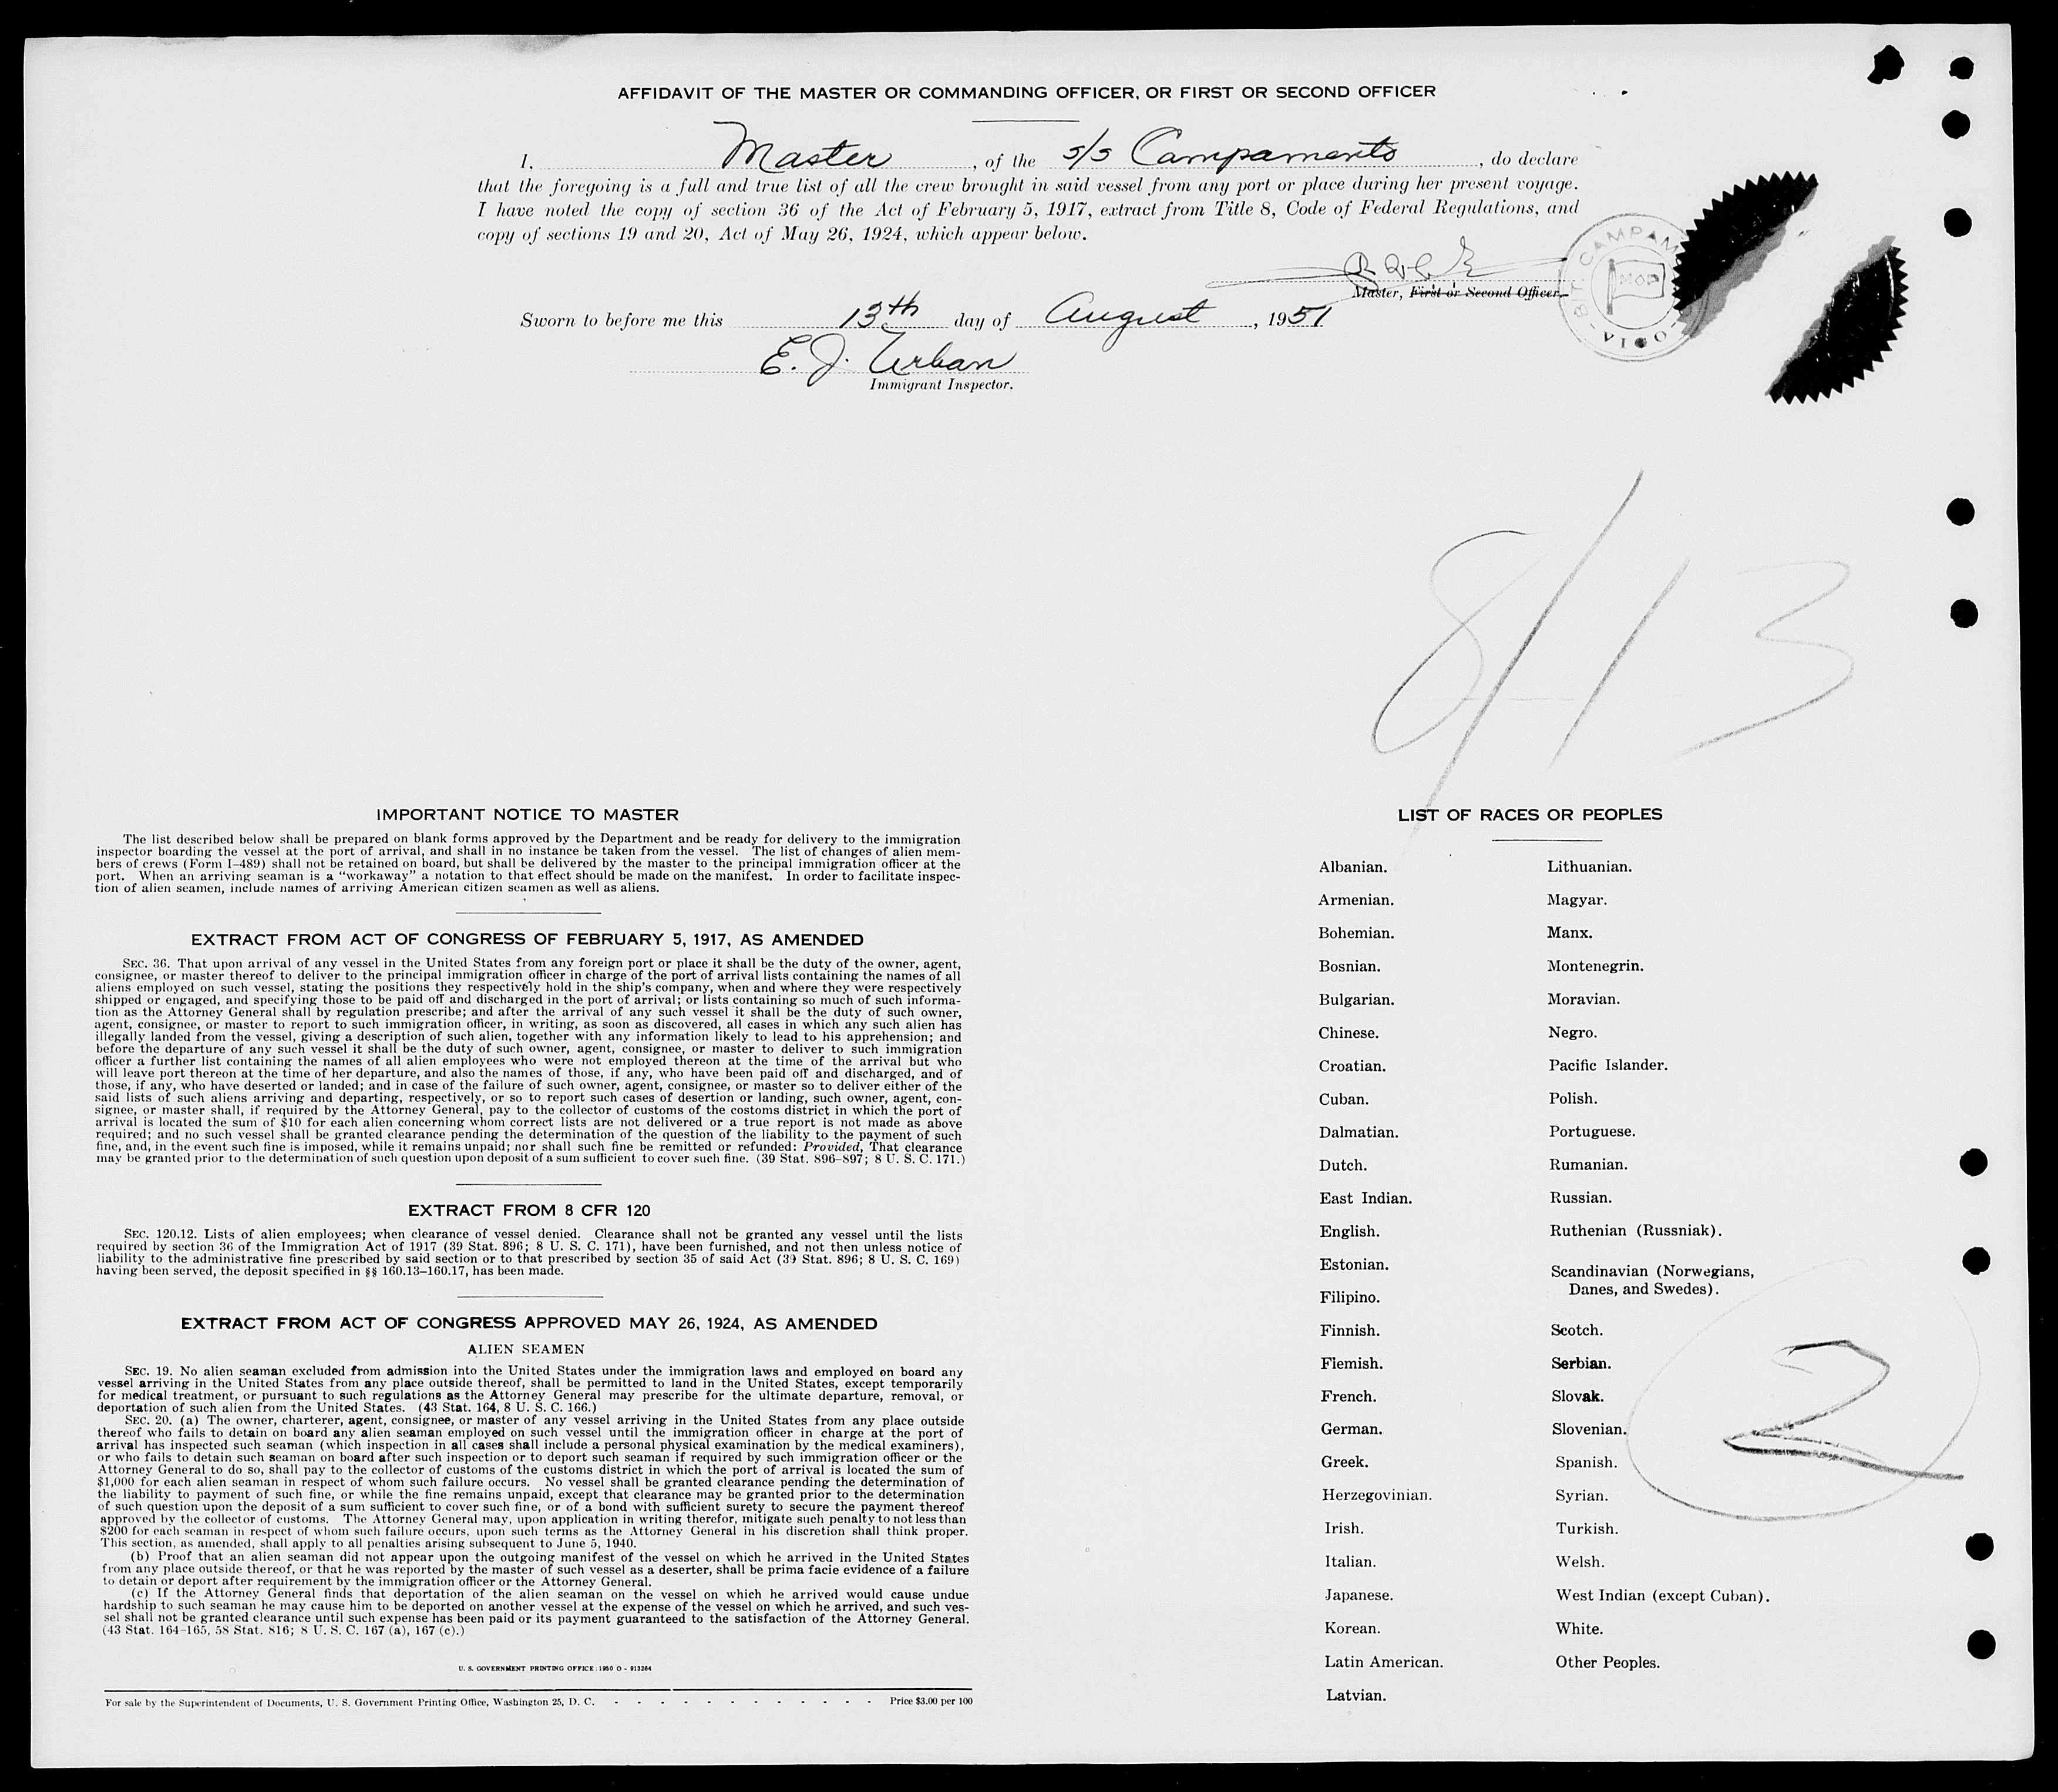 AFFIDAVIT OF THE MASTER OR COMMANDING OFFICER, OR FIRST OR SECOND OFFICER
I, Master, of the s/s Campamento, do declare
that the foregoing is a full and true list of all the crew brought in said vessel from any port or place during her present voyage.
I have noted the copy of section 36 of the Act of February 5, 1917, extract from Title 8, Code of Federal Regulations, and
copy of sections 19 and 20, Act of May 26, 1924, which appear below.
Master, First or Second Officer.
Sworn to before me this 13th day of August, 1951
E. J. Urban
Immigrant Inspector.
CAMPAM
VIGO
8/13
IMPORTANT NOTICE TO MASTER
The list described below shall be prepared on blank forms approved by the Department and be ready for delivery to the immigration
inspector boarding the vessel at the port of arrival, and shall in no instance be taken from the vessel. The list of changes of alien mem-
bers of crews (Form I-489) shall not be retained on board, but shall be delivered by the master to the principal immigration officer at the
port. When an arriving seaman is a "workaway" a notation to that effect should be made on the manifest. In order to facilitate inspec-
tion of alien seamen, include names of arriving American citizen seamen as well as aliens.
EXTRACT FROM ACT OF CONGRESS OF FEBRUARY 5, 1917, AS AMENDED
SEC. 36. That upon arrival of any vessel in the United States from any foreign port or place it shall be the duty of the owner, agent,
consignee, or master thereof to deliver to the principal immigration officer in charge of the port of arrival lists containing the names of all
aliens employed on such vessel, stating the positions they respectively hold in the ship's company, when and where they were respectively
shipped or engaged, and specifying those to be paid off and discharged in the port of arrival; or lists containing so much of such informa-
tion as the Attorney General shall by regulation prescribe; and after the arrival of any such vessel it shall be the duty of such owner,
agent, consignee, or master to report to such immigration officer, in writing, as soon as discovered, all cases in which any such alien has
illegally landed from the vessel, giving a description of such alien, together with any information likely to lead to his apprehension; and
before the departure of any such vessel it shall be the duty of such owner, agent, consignee, or master to deliver to such immigration
officer a further list containing the names of all alien employees who were not employed thereon at the time of the arrival but who
will leave port thereon at the time of her departure, and also the names of those, if any, who have been paid off and discharged, and of
those, if any, who have deserted or landed; and in case of the failure of such owner, agent, consignee, or master so to deliver either of the
said lists of such aliens arriving and departing, respectively, or so to report such cases of desertion or landing, such owner, agent, con-
signee, or master shall, if required by the Attorney General, pay to the collector of customs of the costoms district in which the port of
arrival is located the sum of $10 for each alien concerning whom correct lists are not delivered or a true report is not made as above
required; and no such vessel shall be granted clearance pending the determination of the question of the liability to the payment of such
fine, and, in the event such fine is imposed, while it remains unpaid; nor shall such fine be remitted or refunded: Provided, That clearance
may be granted prior to the determination of such question upon deposit of a sum sufficient to cover such fine. (39 Stat. 896-897; 8 U. S. C. 171.)
EXTRACT FROM 8 CFR 120
SEC. 120.12. Lists of alien employees; when clearance of vessel denied. Clearance shall not be granted any vessel until the lists
required by section 36 of the Immigration Act of 1917 (39 Stat. 896; 8 U. S. C. 171), have been furnished, and not then unless notice of
liability to the administrative fine prescribed by said section or to that prescribed by section 35 of said Act (39 Stat. 896; 8 U. S. C. 169)
having been served, the deposit specified in §§ 160.13-160.17, has been made.
EXTRACT FROM ACT OF CONGRESS APPROVED MAY 26, 1924, AS AMENDED
ALIEN SEAMEN
SEC. 19. No alien seaman excluded from admission into the United States under the immigration laws and employed on board any
vessel arriving in the United States from any place outside thereof, shall be permitted to land in the United States, except temporarily
for medical treatment, or pursuant to such regulations as the Attorney General may prescribe for the ultimate departure, removal, or
deportation of such alien from the United States. (43 Stat. 164, 8 U. S. C. 166.)
SEC. 20. (a) The owner, charterer, agent, consignee, or master of any vessel arriving in the United States from any place outside
thereof who fails to detain on board any alien seaman employed on such vessel until the immigration officer in charge at the port of
arrival has inspected such seaman (which inspection in all cases shall include a personal physical examination by the medical examiners),
or who fails to detain such seaman on board after such inspection or to deport such seaman if required by such immigration officer or the
Attorney General to do so, shall pay to the collector of customs of the customs district in which the port of arrival is located the sum of
$1,000 for each alien seaman in respect of whom such failure occurs. No vessel shall be granted clearance pending the determination of
the liability to payment of such fine, or while the fine remains unpaid, except that clearance may be granted prior to the determination
of such question upon the deposit of a sum sufficient to cover such fine, or of a bond with sufficient surety to secure the payment thereof
approved by the collector of customs. The Attorney General may, upon application in writing therefor, mitigate such penalty to not less than
$200 for each seaman in respect of whom such failure occurs, upon such terms as the Attorney General in his discretion shall think proper.
This section, as amended, shall apply to all penalties arising subsequent to June 5, 1940.
(b) Proof that an alien seaman did not appear upon the outgoing manifest of the vessel on which he arrived in the United States
from any place outside thereof, or that he was reported by the master of such vessel as a deserter, shall be prima facie evidence of a failure
to detain or deport after requirement by the immigration officer or the Attorney General.
(c) If the Attorney General finds that deportation of the alien seaman on the vessel on which he arrived would cause undue
hardship to such seaman he may cause him to be deported on another vessel at the expense of the vessel on which he arrived, and such ves-
sel shall not be granted clearance until such expense has been paid or its payment guaranteed to the satisfaction of the Attorney General.
(43 Stat. 164-165, 58 Stat. 816; 8 U. S. C. 167 (a), 167 (c).)
U. S. GOVERNMENT PRINTING OFFICE : 1950 O - 913264
For sale by the Superintendent of Documents, U. S. Government Printing Office, Washington 25, D. C. - - - - - - - - - - - - Price $3.00 per 100
LIST OF RACES OR PEOPLES
Albanian.
Armenian.
Bohemian.
Bosnian.
Bulgarian.
Chinese.
Croatian.
Cuban.
Dalmatian.
Dutch.
East Indian.
English.
Estonian.
Filipino.
Finnish.
Flemish.
French.
German.
Greek.
Herzegovinian.
Irish.
Italian.
Japanese.
Korean.
Latin American.
Latvian.
Lithuanian.
Magyar.
Manx.
Montenegrin.
Moravian.
Negro.
Pacific Islander.
Polish.
Portuguese.
Rumanian.
Russian.
Ruthenian (Russniak).
Scandinavian (Norwegians,
Danes, and Swedes).
Scotch.
Serbian.
Slovak.
Slovenian.
Spanish.
Syrian.
Turkish.
Welsh.
West Indian (except Cuban).
White.
Other Peoples.
2